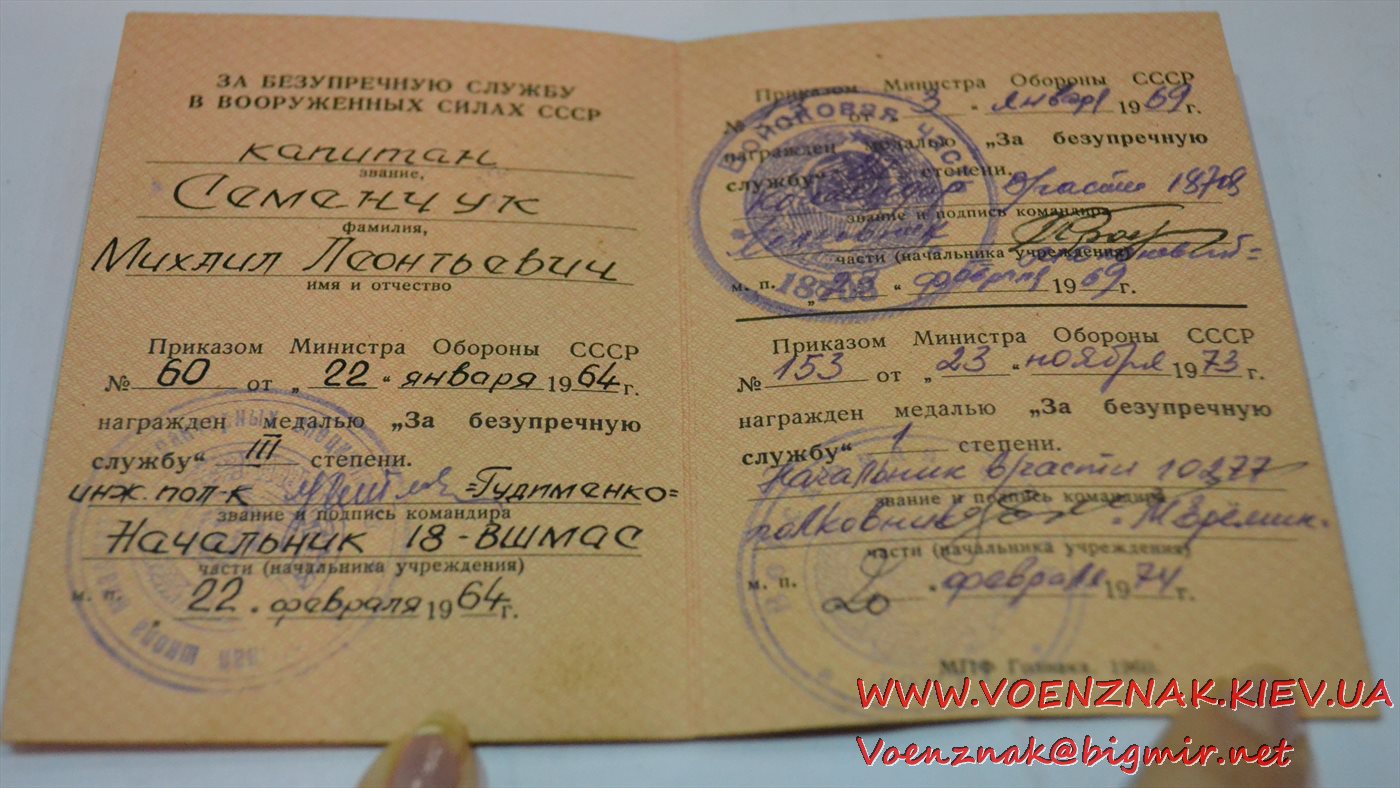 ЗА БЕЗУПРЕЧНУЮ СЛУЖБУ
В ВООРУЖЕННЫХ СИЛАХ СССР
капитан
звание,
Семенчук
фамилия,
Михаил Леонтьевич
имя и отчество
Приказом Министра Обороны СССР
№ 60 от „ 22 “ января 1964 г.
награжден медалью „За безупречную
службу“ III степени.
инж. пол-к =Гудименко=
звание и подпись командира
Начальник 18-ВШМАС
части (начальника учреждения)
м. п. „22 “ февраля 1964 г.
Приказом Министра Обороны СССР
№ от „ 3 “ января 1969 г.
награжден медалью „За безупречную
службу“ степени.
Командир в/части 18708
звание и подпись командира
полковник
части (начальника учреждения)
м. п. „23 “ февраля 1969 г.
ВОЙСКОВАЯ ЧАСТЬ
18708
Приказом Министра Обороны СССР
№ 153 от „ 23 “ ноября 1973 г.
награжден медалью „За безупречную
службу“ 1 степени.
Начальник в/части 10277
звание и подпись командира
полковник
части (начальника учреждения)
м. п. 20 февраля 1974 г.
WWW.VOENZNAK.KIEV.UA
Voenznak@bigmir.net